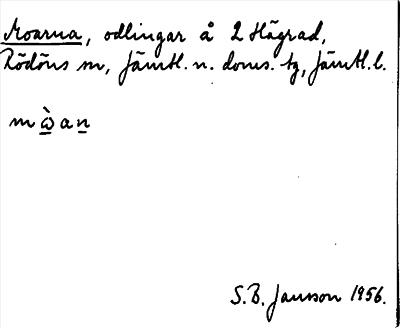 Moarna, odlingar å 2 Hägrad,
Rödöns sn, Jämtl. n. doms. tg, Jämtl. l.
m ὼ a n
S.B. Jansson 1956.